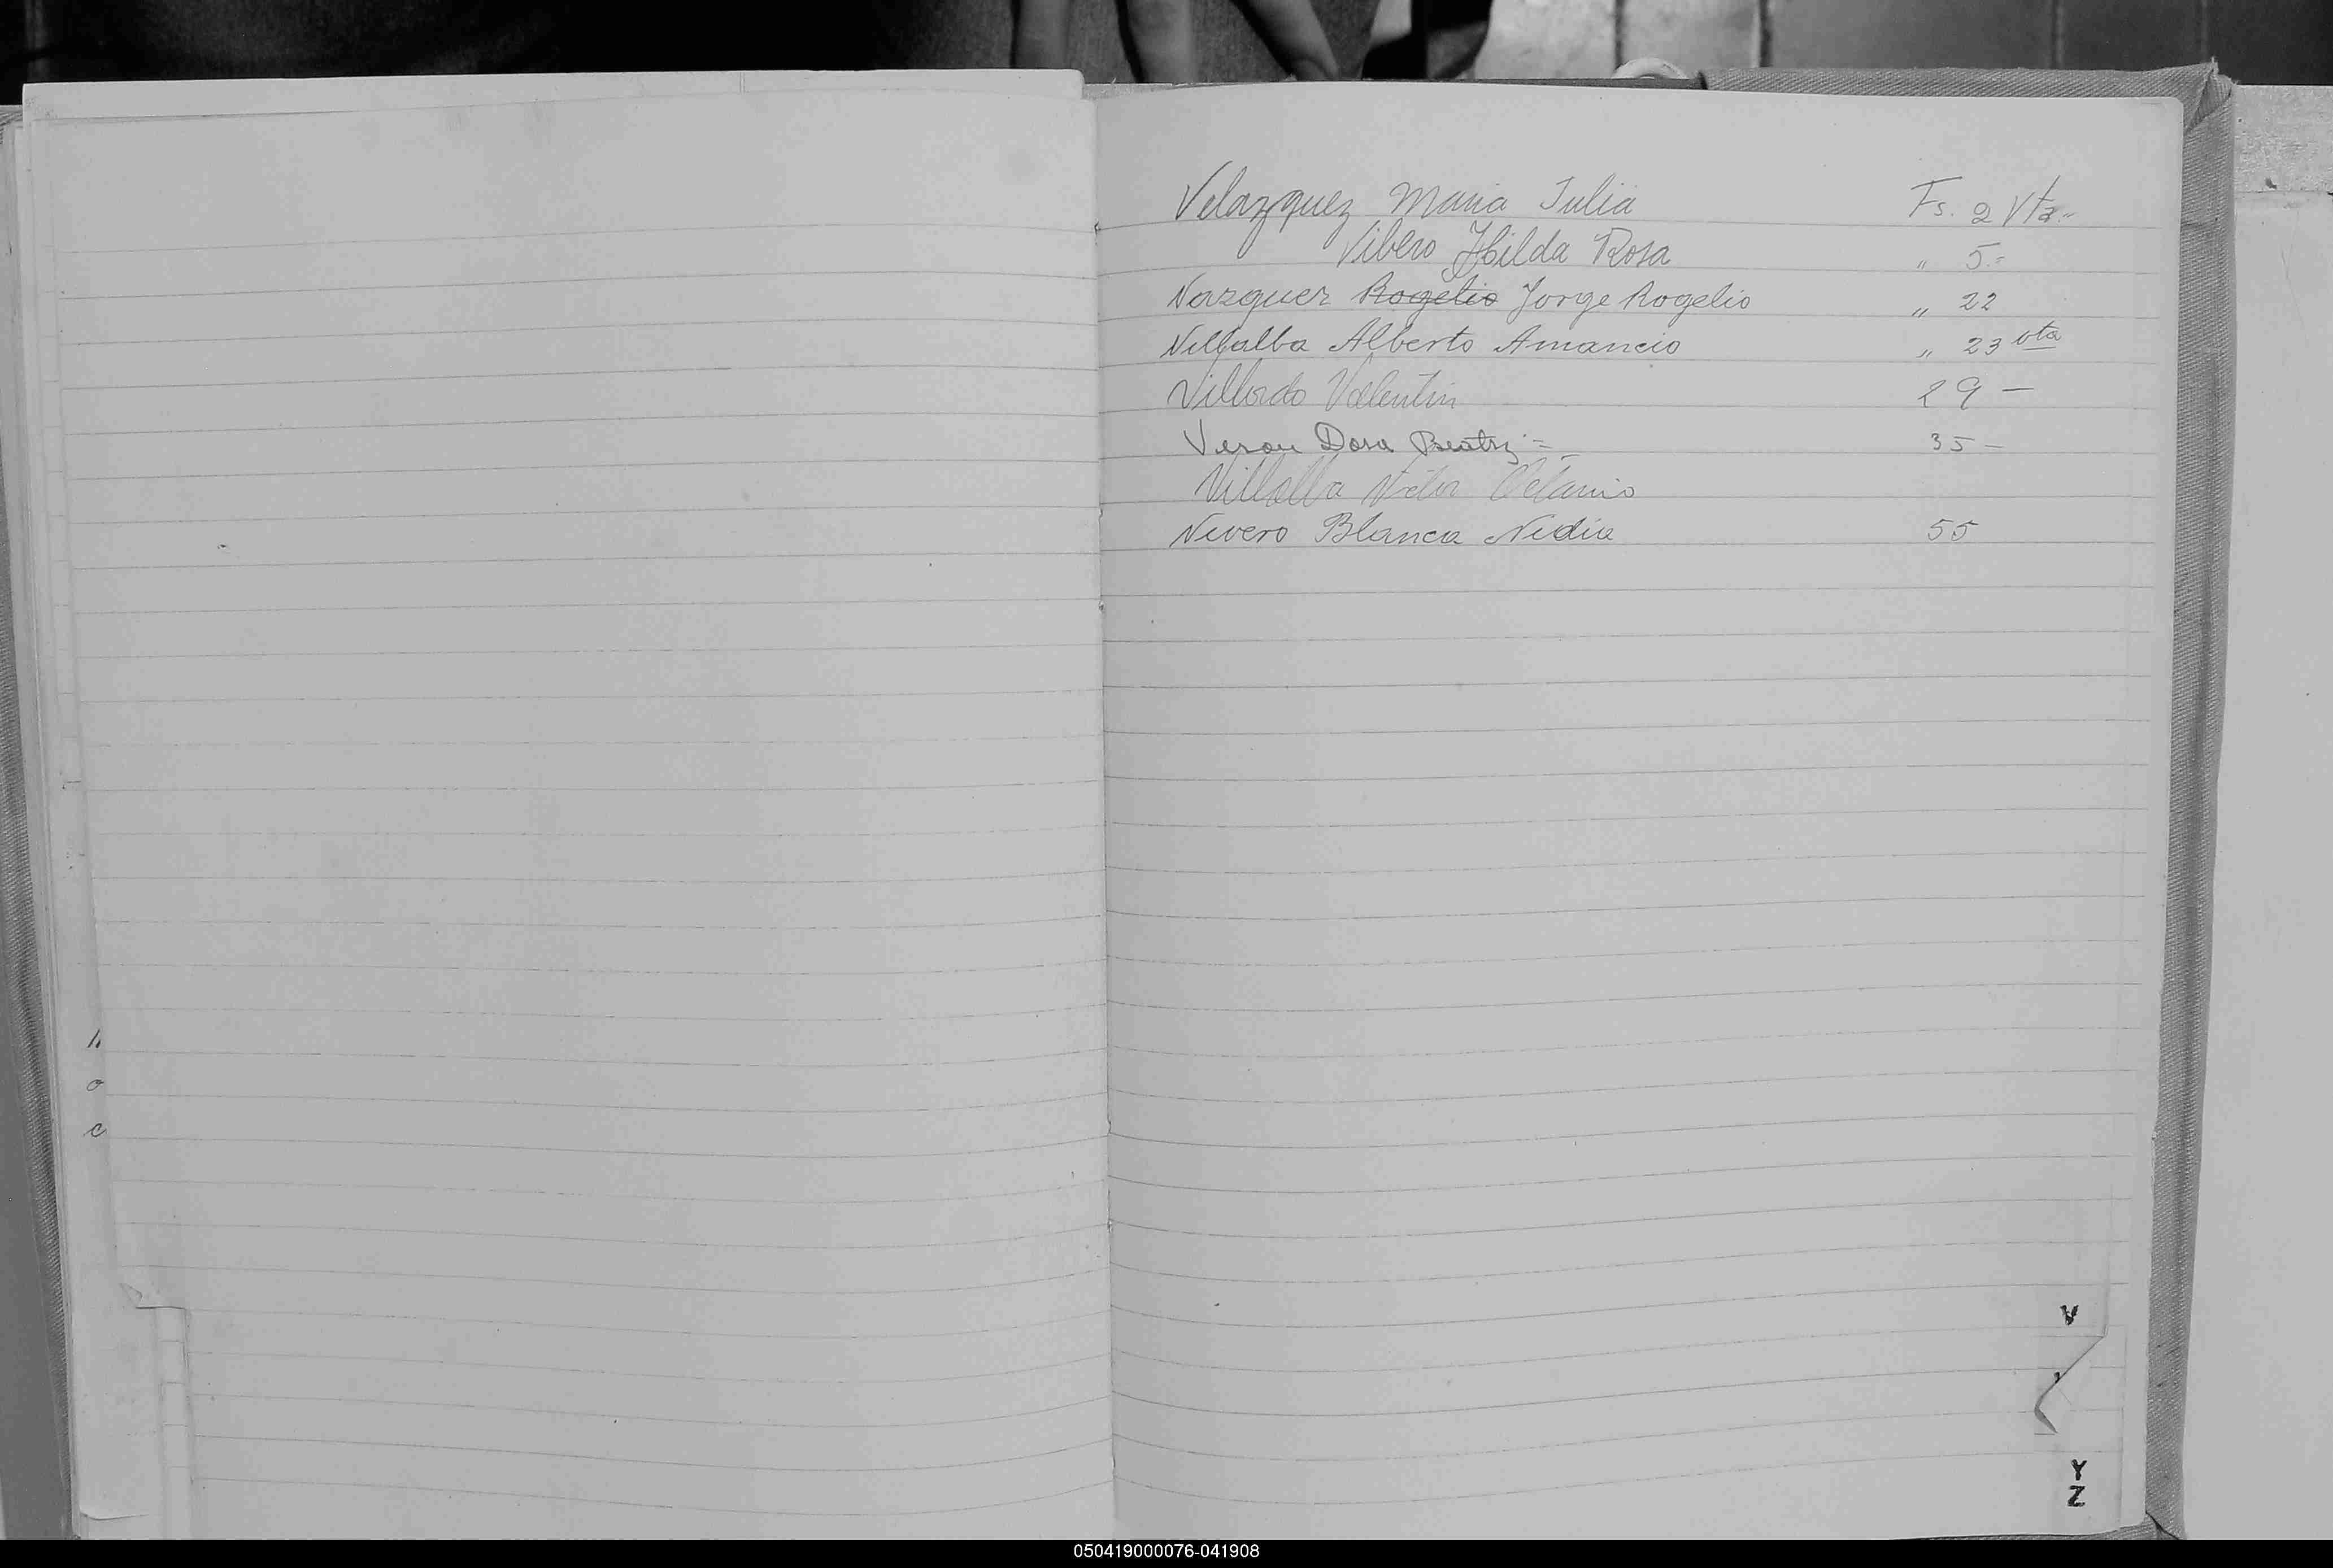 Velazquez Maria Julia Fs. 2 Vta.-
Vibero Hilda Rosa " 5.-
Vazquez Rogelio Jorge Rogelio " 22
Villalba Alberto Amancio " 23 vta
Villordo Valentin 29 -
Veron Dora Beatriz = 35 -
Villalba Victor
Vivero Blanca Nidia 55
o
c
V
Y
Z
050419000076-041908